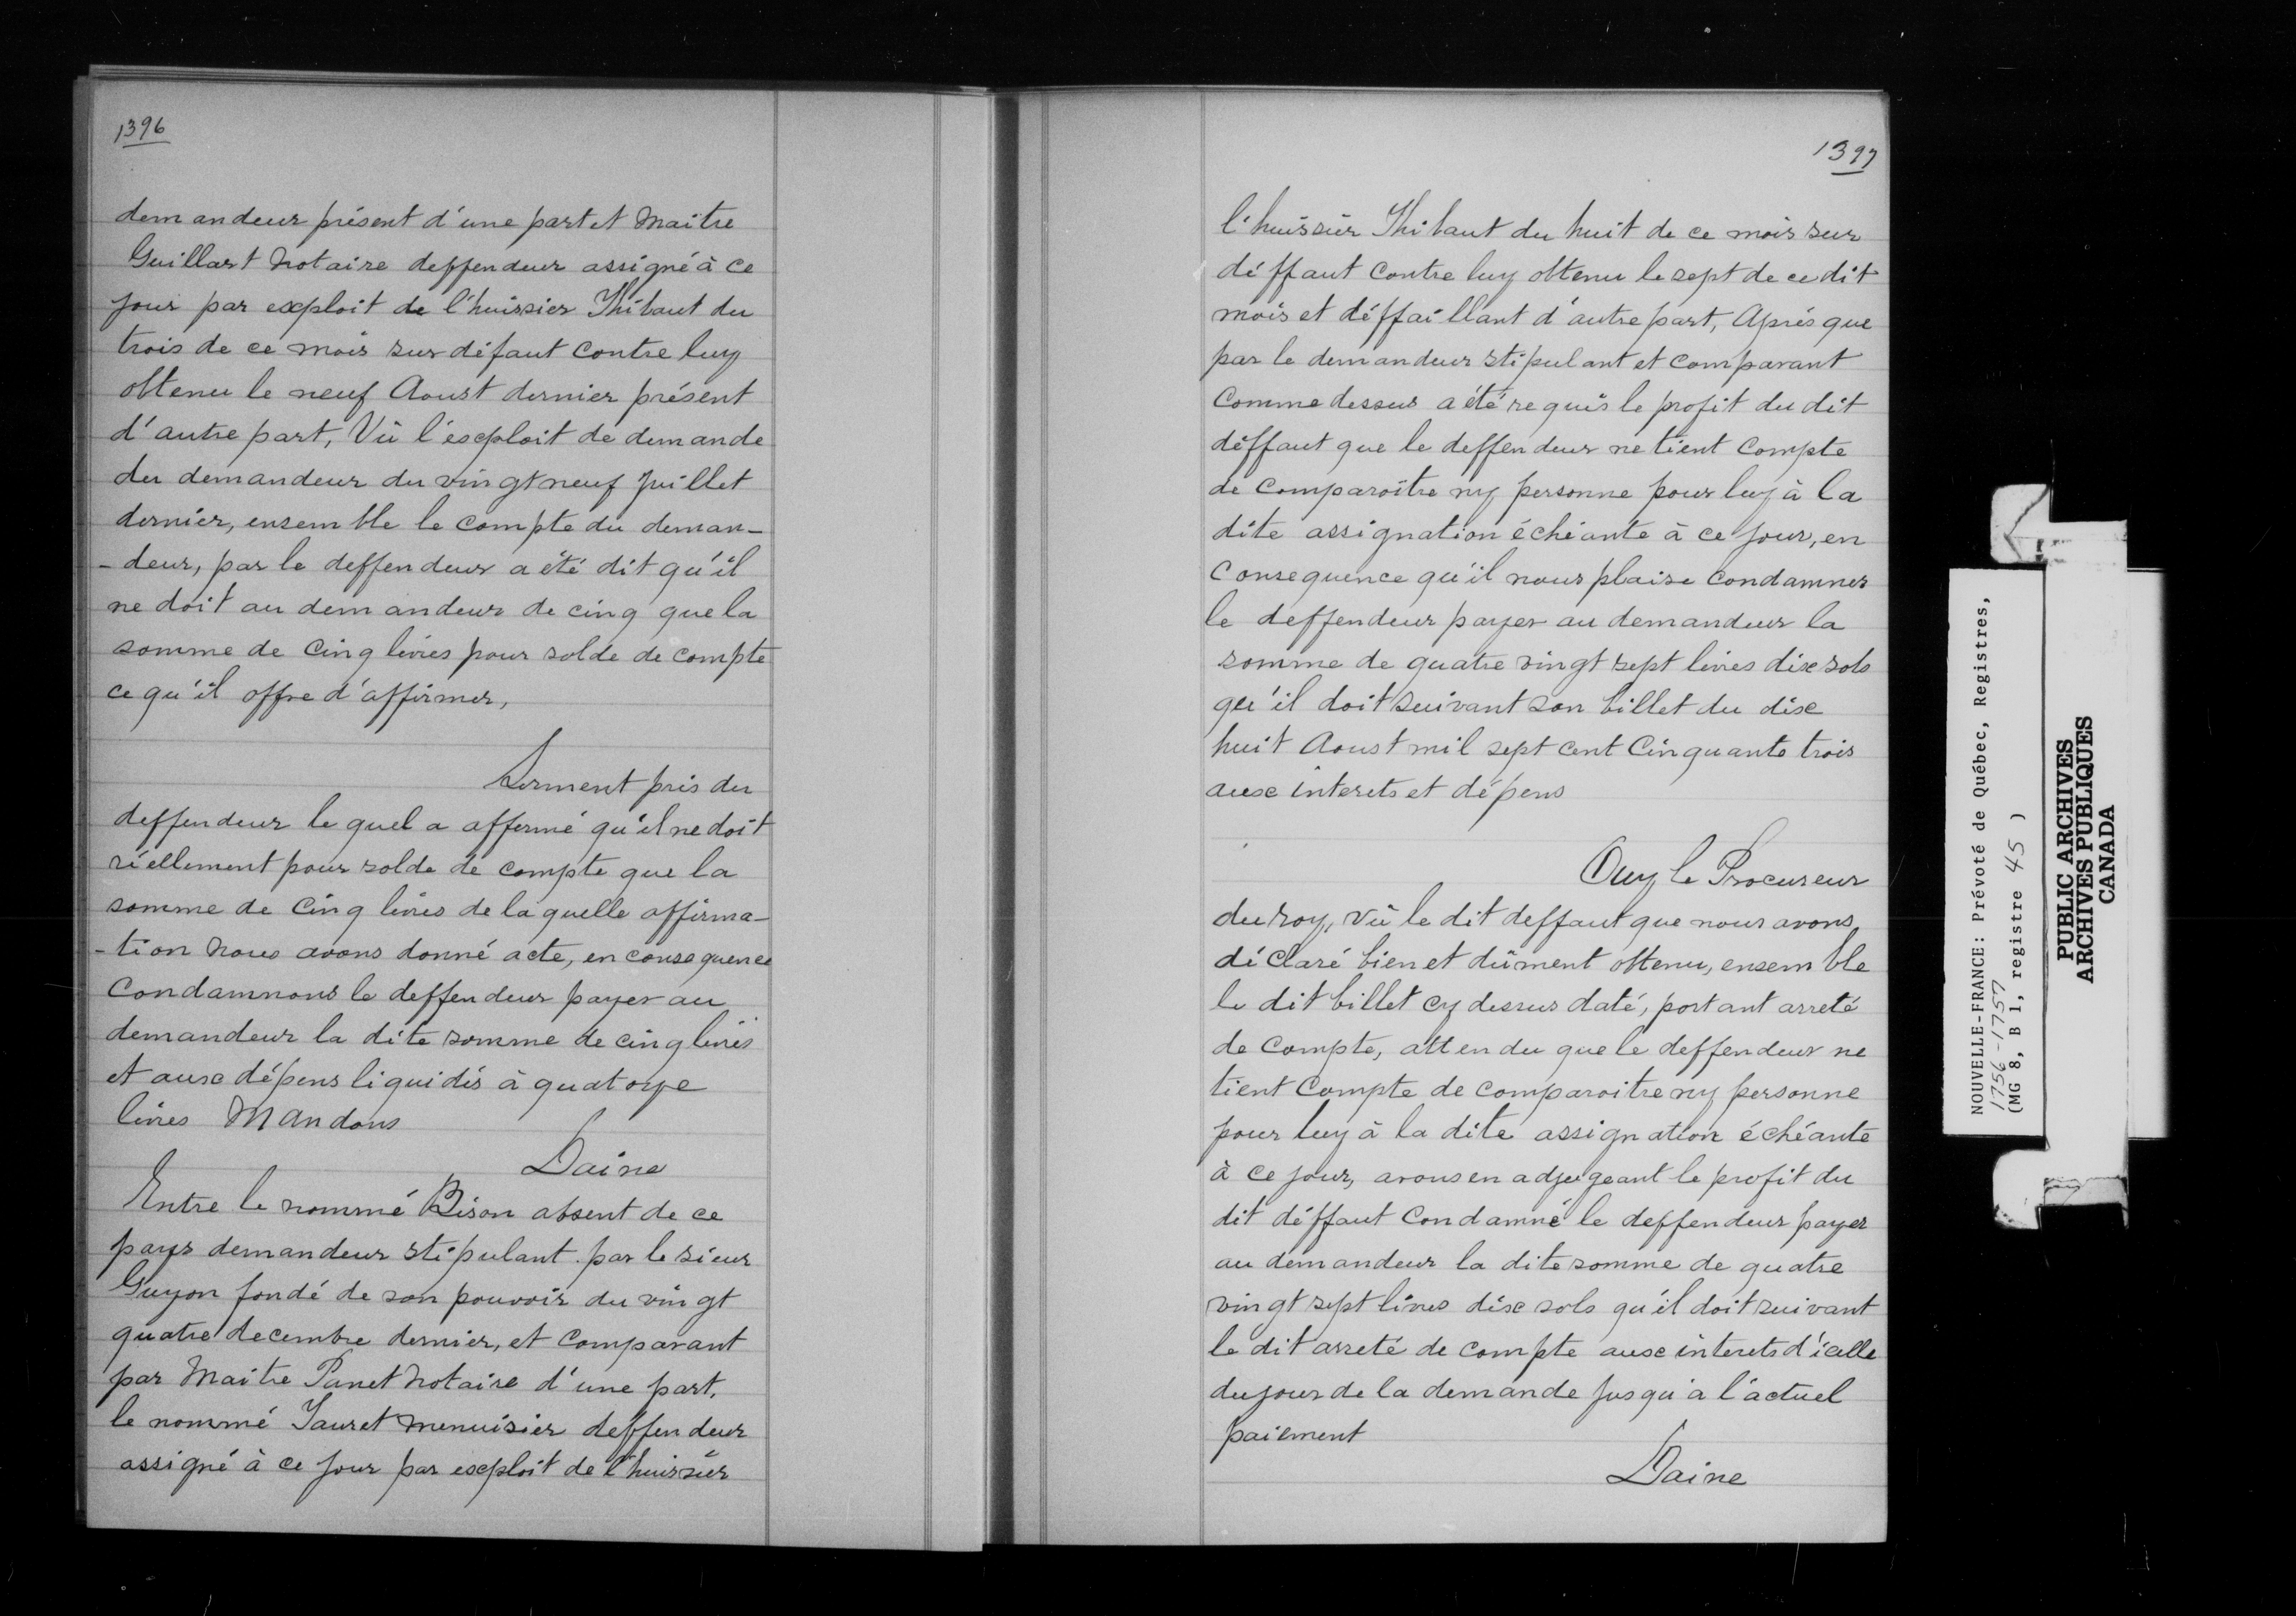 1396
demandeur présent d'une part et Maitre
Guillart Notaire deffendeur assigné à ce
jour par exploit de l'huissier Thibaut du
trois de ce mois sur défaut contre luy
obtenu le neuf Aoust dernier présent
d'autre part, Vû l'exploit de demande
du demandeur du vingt neuf Juillet
dernier, ensemble le compte du deman-
-deur, par le deffendeur a été dit qu'il
ne doit au demandeur de cinq que la
somme de Cinq livres pour solde de compte
ce qu'il offre d'affirmer,
Serment pris du
deffendeur le quel a affermé qu'il ne doit
réellement pour solde de compte que la
somme de Cinq livres de la quelle affirma-
-tion Nous avons donné acte, en consequence
Condamnons le deffendeur payer au
demandeur la dite somme de cinq livres
et aux dépens liquidés à quatorze
livres Mandons
Daine
Entre le nommé Bison absent de ce
pays demandeur stipulant par le sieur
Guyon fondé de son pouvoir du vingt
quatre decembre dernier, et comparant
par Maitre Panet Notaire d'une part,
le nommé Jauret menuisier deffendeur
assigné à ce jour par exploit de l'huissier
1397
l'huissier Thibaut du huit de ce mois sur
déffaut contre luy obtenu le sept de ce dit
mois et déffaillant d'autre part, Aprés que
par le demandeur stipulant et comparant
Comme dessus a été requis le profit du dit
déffaut que le deffendeur ne tient compte
de comparoître ny personne pour luy à la
dite assignation échéante à ce jour, en
Consequence qu'il nous plaise condamner
le deffendeur payer au demandeur la
somme de quatre vingt sept livres dix sols
qu'il doit suivant son billet du dix
huit Aoust mil sept cent Cinquante trois
aux interets et dépens
Ouy le Procureur
du roy, vû le dit deffaut que nous avons
déclaré bien et dûment obtenu, ensemble
le dit billet cy dessus daté, portant arreté
de compte, attendu que le deffendeur ne
tient Compte de comparoitre ny personne
pour luy à la dite assignation échéante
à ce jour, avons en adjugeant le profit du
dit déffaut Condamné le deffendeur payer
au demandeur la dite somme de quatre
vingt sept livres dix sols qu'il doit suivant
le dit arreté de compte aux interets d'icelle
du jour de la demande jusqu'a l'actuel
paiement
Daine
NOUVELLE-FRANCE: Prévoté de Québec, Registres,
1756-1757
(MG 8, B 1, registre 45 )
PUBLIC ARCHIVES
ARCHIVES PUBLIQUES
CANADA